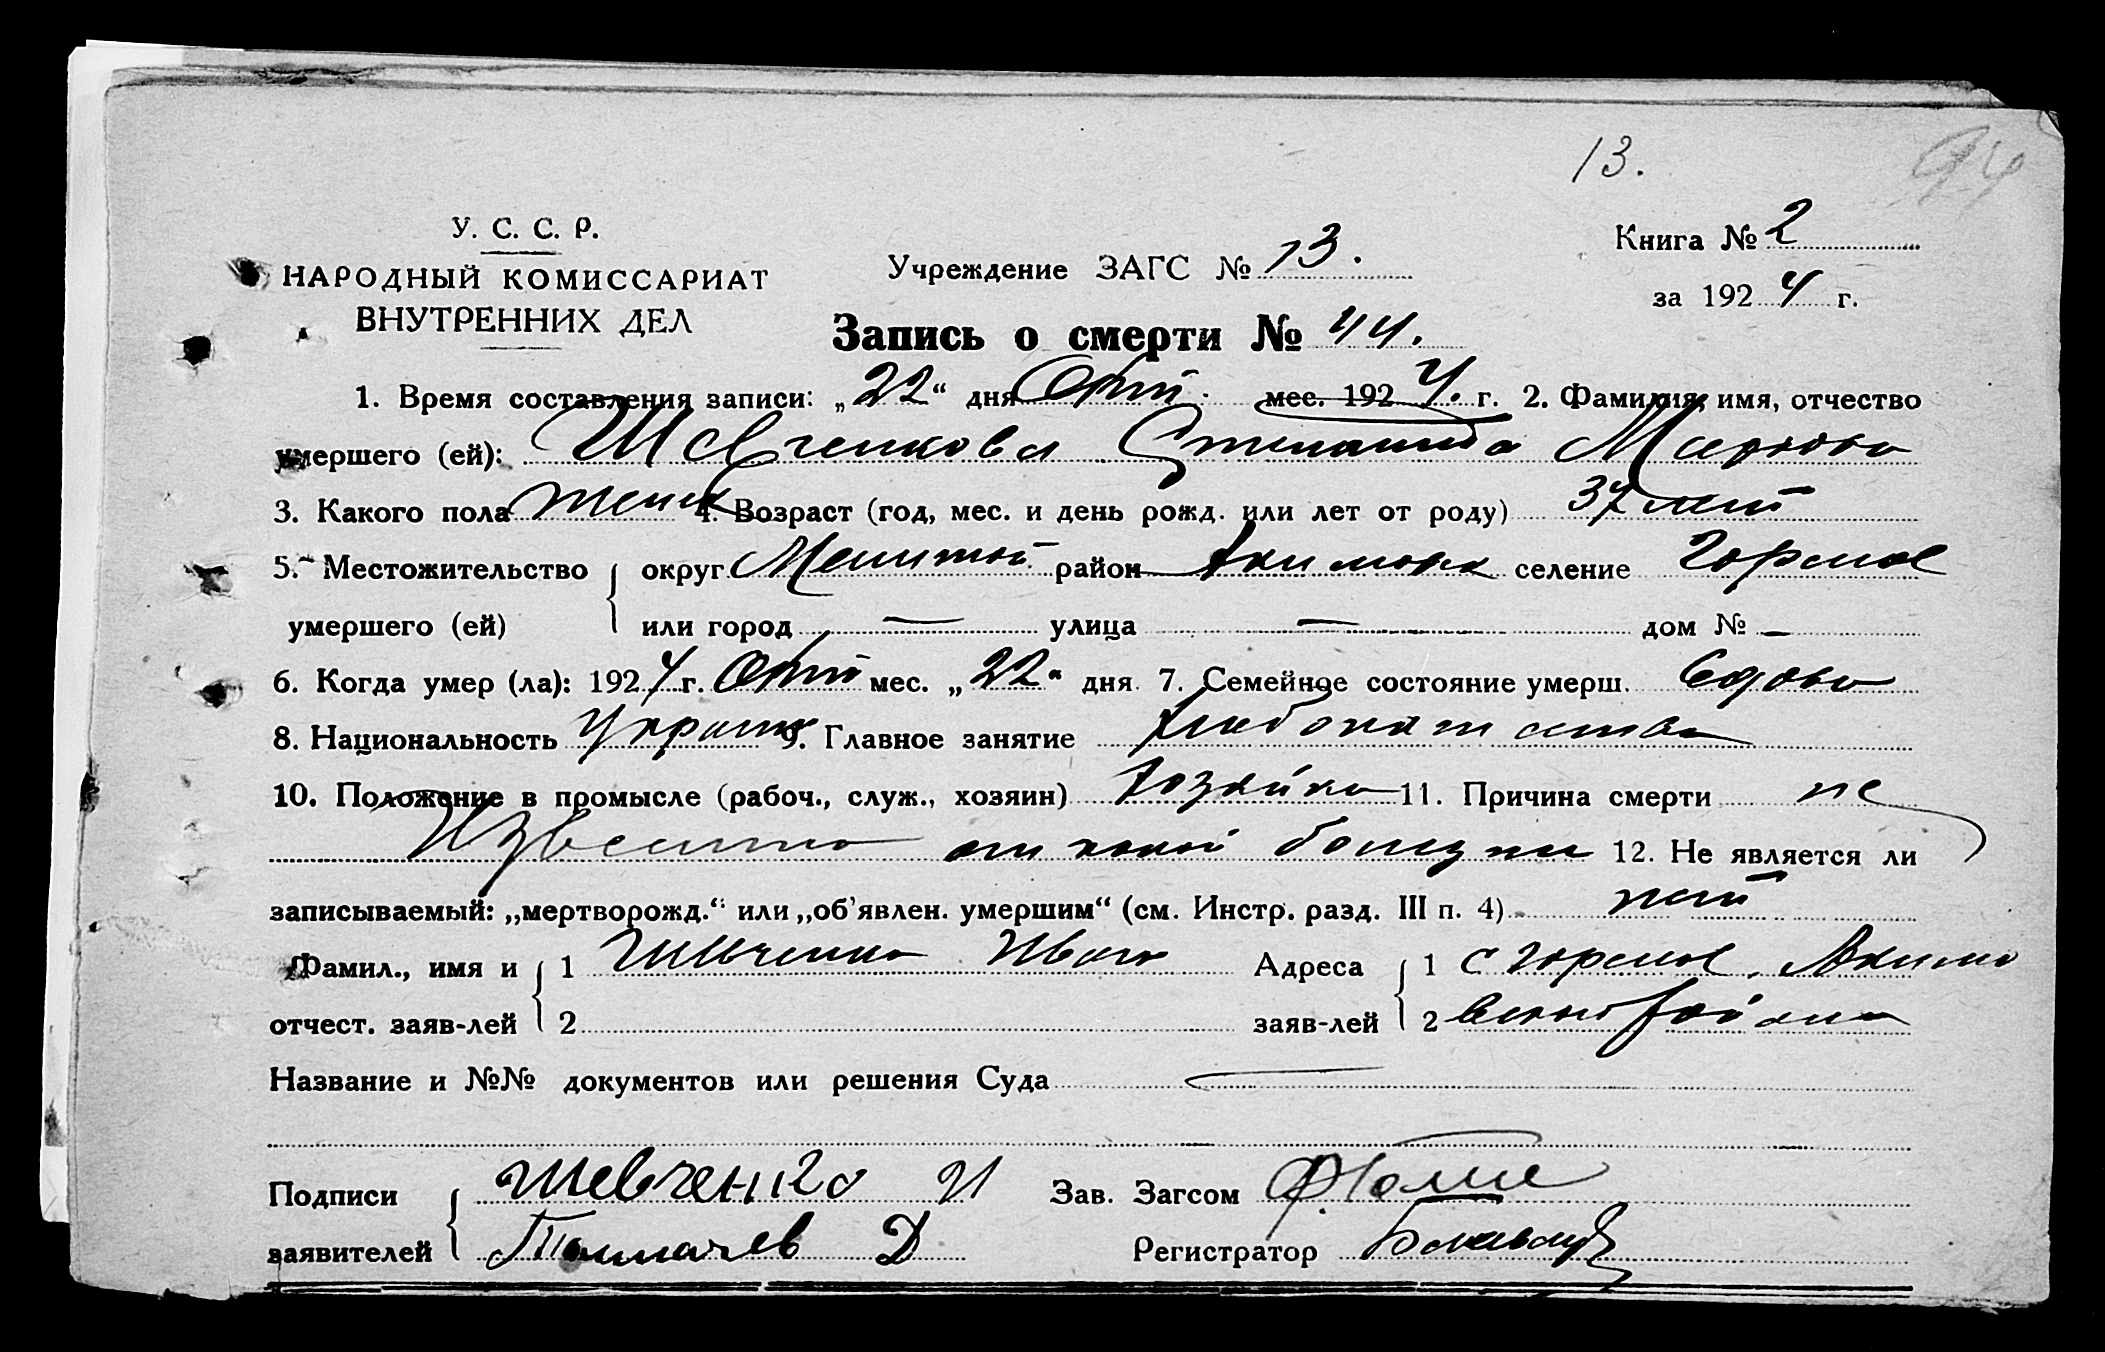 13.
94
У. С. С. Р.
НАРОДНЫЙ КОМИССАРИАТ
ВНУТРЕННИХ ДЕЛ
Учреждение ЗАГС № 13.
Книга № 2
за 1924 г.
Запись о смерти № 44.
1. Время составления записи: „22“ дня Окт. мес. 1924. г. 2. Фамилия, имя, отчество
умершего (ей): Шевченкова Степанида Маркова
3. Какого пола женск 4. Возраст (год, мес. и день рожд. или лет от роду) 37 лет
5. Местожительство округ Мелитоп. район Акимовск селение Горелое
умершего (ей) или город — улица — дом № —
6. Когда умер (ла): 1924 г. Окт мес. „22“ дня 7. Семейное состояние умерш. вдова
8. Национальность Украин 9. Главное занятие хлебопашество
10. Положение в промысле (рабоч., служ., хозяин) хозяйка 11. Причина смерти не
известно от какой болезни 12. Не является ли
записываемый: „мертворожд.“ или „об'явлен. умершим“ (см. Инстр. разд. III п. 4) нет
Фамил., имя и 1 Шевченко Иван Адреса 1 с Горелое, Акимо
отчест. заяв-лей 2 заяв-лей 2 вского района
Название и №№ документов или решения Суда —
Подписи Шевченко И Зав. Загсом
заявителей Толмачев Д Регистратор